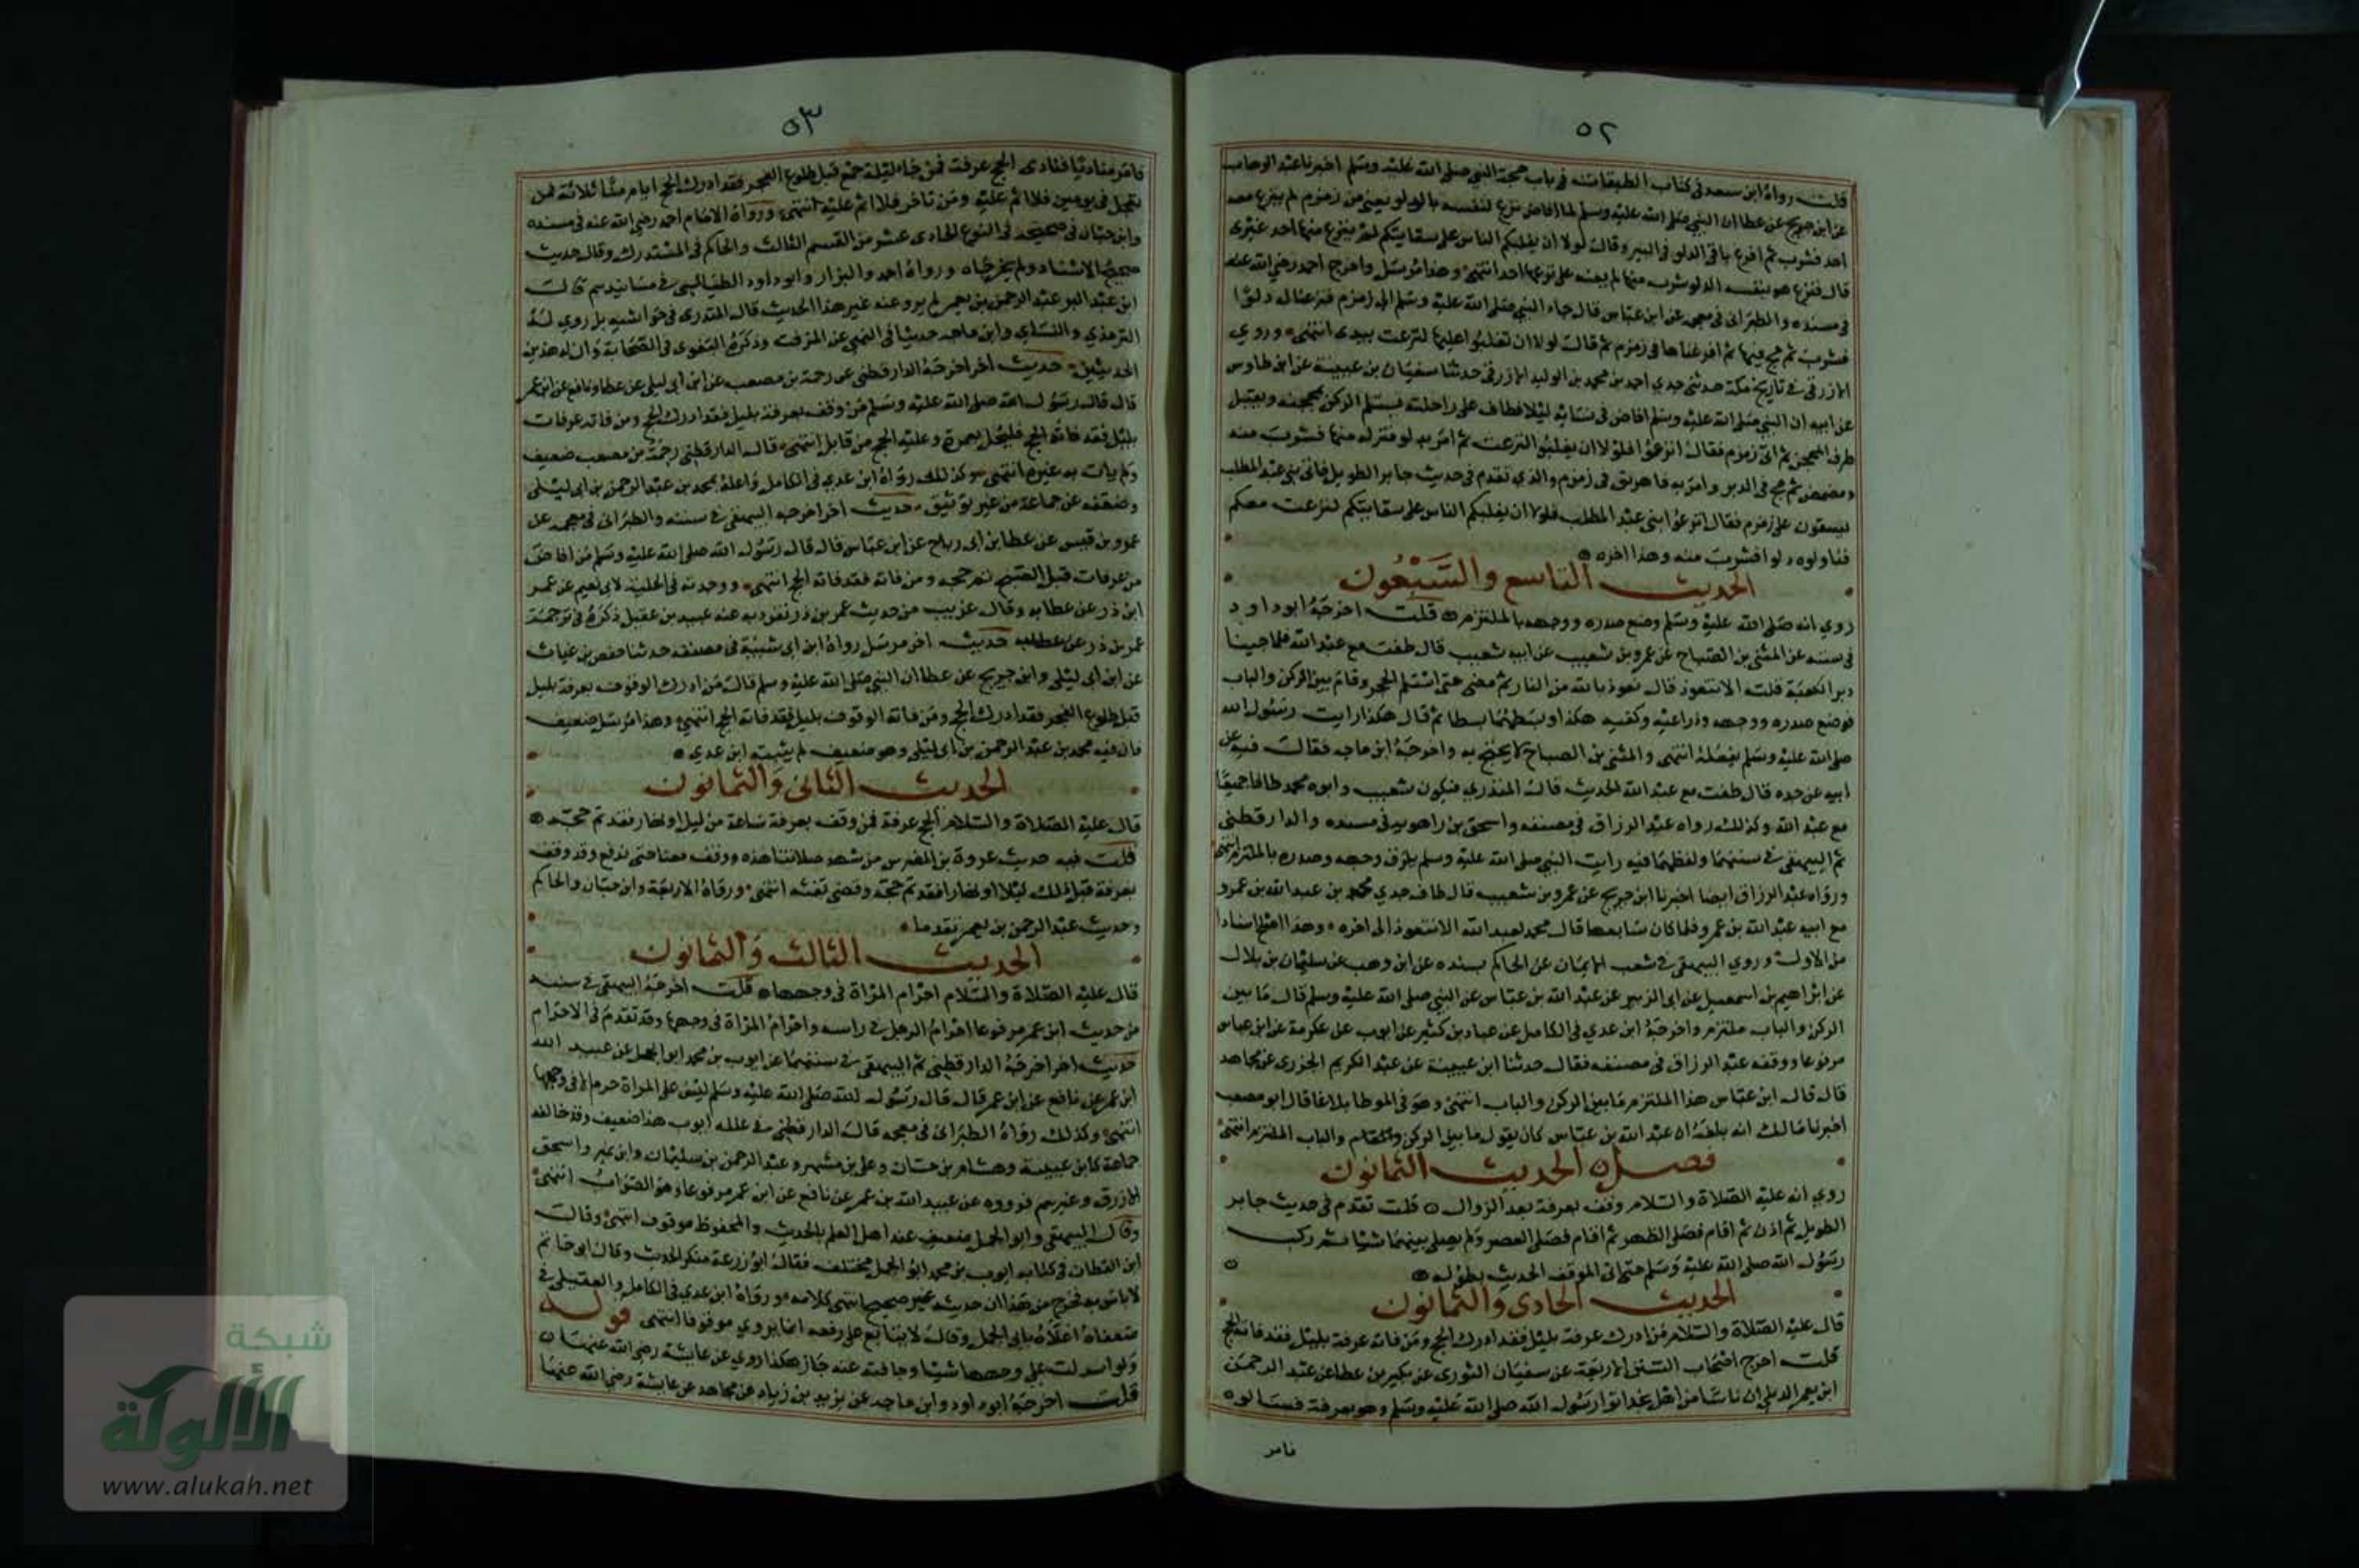 ٥٢
قلت رواه ابن سعد في كتاب الطبقات في باب حجة النبي صلى الله عليه وسلم اخبرنا عبد الوهاب
عن ابن جريج عن عطا ان النبي صلى الله عليه وسلم لما افاض نزع لنفسه بالدلو يعني من زمزم لم ينزع معه
احد فشرب ثم افرغ باقي الدلو في البير وقال لولا ان يغلبكم الناس على سقايتكم لم ينزع منها احد غيري
قال فنزع هو بنفسه الدلو شرب منها لم يعنه على نزعها احد انتهى وهذا مرسل واخرج احمد رضي الله عنه
في مسنده والطبراني في معجمه عن ابن عباس قال جاء النبي صلى الله عليه وسلم الى زمزم فنزعنا له دلوا
فشرب ثم مج فيها ثم افرغناها في زمزم ثم قال لولا ان تغلبوا عليها لنزعت بيدي انتهى وروي
الازرقي في تاريخ مكة حدثني جدي احمد بن محمد بن الوليد الازرقي حدثنا سفيان بن عيينة عن ابن طاوس
عن ابيه ان النبي صلى الله عليه وسلم افاض في نسائه ليلا فطاف على راحلته يستلم الركن بمحجنه ويقبل
طرف المحجن ثم اتى زمزم فقال انزعوا فلولا ان يغلبوا لنزعت ثم امر بدلو فنزله منها فشرب منه
ومضمض ثم مج في الدبر وامر به فاهريق في زمزم والذي تقدم في حديث جابر الطويل فاتى بني عبد المطلب
يسقون على زمزم فقال انزعوا بني عبد المطلب فلولا ان يغلبكم الناس على سقايتكم لنزعت معكم
فناولوه دلوا فشرب منه وهذا اخره
الحديث التاسع والسبعون
روي انه صلى الله عليه وسلم وضع صدره ووجهه بالملتزم قلت اخرجه ابو داود
في سننه عن المثنى بن الصباح عن عمرو بن شعيب عن ابيه شعيب قال طفت مع عبد الله فلما جينا
دبر الكعبة قلت الا نتعوذ قال نعوذ بالله من النار ثم مضى حتى استلم الحجر وقام بين الركن والباب
فوضع صدره ووجهه وذراعيه وكفيه هكذا وبسطهما بسطا ثم قال هكذا رايت رسول الله
صلى الله عليه وسلم يفعله انتهى والمثنى بن الصباح لا يحتج به واخرجه ابن ماجه فقال فيه عن
ابيه عن جده قال طفت مع عبد الله الحديث قال المنذري فيكون شعيب وابوه محمد طافا جميعا
مع عبد الله وكذلك رواه عبد الرزاق في مصنفه واسحق بن راهويه في مسنده والدارقطني
ثم البيهقي في سننهما ولفظهما فيه رايت النبي صلى الله عليه وسلم يلزق وجهه وصدره بالملتزم انتهى
ورواه عبد الرزاق ايضا اخبرنا ابن جريج عن عمرو بن شعيب قال طاف جدي محمد بن عبد الله بن عمرو
مع ابيه عبد الله بن عمرو فلما كان سابعها قال محمد لعبد الله الا نتعوذ الى اخره وهذا اصح اسنادا
من الاول وروي البيهقي في شعب الايمان عن الحاكم بسنده عن ابن وهب عن سليمان بن بلال
عن ابراهيم بن اسمعيل عن ابي الزبير عن عبد الله بن عباس عن النبي صلى الله عليه وسلم قال ما بين
الركن والباب ملتزم واخرجه ابن عدي في الكامل عن عباد بن كثير عن ايوب عن عكرمة عن ابن عباس
مرفوعا ووقفه عبد الرزاق في مصنفه فقال حدثنا ابن عيينة عن عبد الكريم الجزري عن مجاهد
قال قال ابن عباس هذا الملتزم ما بين الركن والباب انتهى وهو في الموطا بلاغا قال ابو مصعب
اخبرنا مالك انه بلغه ان عبد الله بن عباس كان يقول ما بين الركن والمقام والباب الملتزم انتهى
فصل الحديث الثمانون
روي انه عليه الصلاة والسلام وقف بعرفة بعد الزوال قلت تقدم في حديث جابر
الطويل ثم اذن ثم اقام فصلى الظهر ثم اقام فصلى العصر ولم يصل بينهما شيا ثم ركب
رسول الله صلى الله عليه وسلم حتى اتى الموقف الحديث بطوله
الحديث الحادي والثمانون
قال عليه الصلاة والسلام من ادرك عرفة بليل فقد ادرك الحج ومن فاته عرفة بليل فقد فاته الحج
قلت اخرج اصحاب السنن الاربعة عن سفيان الثوري عن بكير بن عطا عن عبد الرحمن
ابن يعمر الديلي ان ناسا من اهل نجد اتوا رسول الله صلى الله عليه وسلم وهو بعرفة فسالوه
فامر
٥٣
فامر مناديا فنادى الحج عرفة فمن جاء ليلة جمع قبل طلوع الفجر فقد ادرك الحج ايام منا ثلاثة فمن
تعجل في يومين فلا اثم عليه ومن تاخر فلا اثم عليه انتهى ورواه الامام احمد رضي الله عنه في مسنده
وابن حبان في صحيحه في النوع الحادي عشر من القسم الثالث والحاكم في المستدرك وقال حديث
صحيح الاسناد ولم يخرجاه ورواه احمد والبزار وابو داود الطيالسي في مسانيدهم قال
ابن عبد البر عبد الرحمن بن يعمر لم يرو عنه غير هذا الحديث قال المنذري في حواشيه بل روي له
الترمذي والنسائي وابن ماجه حديثا في النهي عن المزفت وذكره البغوي في الصحابة وان له هذين
الحديثين حديث اخر اخرجه الدارقطني عن رحمة بن مصعب عن ابن ابي ليلى عن عطا ونافع عن ابن عمر
قال قال رسول الله صلى الله عليه وسلم من وقف بعرفة بليل فقد ادرك الحج ومن فاته عرفات
بليل فقد فاته الحج فليحل بعمرة وعليه الحج من قابل انتهى قال الدارقطني رحمة بن مصعب ضعيف
ولم يات به غيره انتهى وكذلك رواه ابن عدي في الكامل واعله بمحمد بن عبد الرحمن بن ابي ليلى
وضعفه عن جماعة من غير توثيق حديث اخر اخرجه البيهقي في سننه والطبراني في معجمه عن
عمرو بن قيس عن عطا بن ابي رباح عن ابن عباس قال قال رسول الله صلى الله عليه وسلم من افاض
من عرفات قبل الصبح تم حجه ومن فاته فقد فاته الحج انتهى ووجدته في الحلية لابي نعيم عن عمر
ابن ذر عن عطا به وقال غريب من حديث عمر بن ذر تفرد به عنه عبيد بن عقيل ذكره في ترجمة
عمر بن ذر عن عطا به حديث اخر مرسل رواه ابن ابي شيبة في مصنفه حدثنا حفص بن غياث
عن ابن ابي ليلى وابن جريج عن عطا ان النبي صلى الله عليه وسلم قال من ادرك الوقوف بعرفة بليل
قبل طلوع الفجر فقد ادرك الحج ومن فاته الوقوف بليل فقد فاته الحج انتهى وهذا مرسل ضعيف
فان فيه محمد بن عبد الرحمن بن ابي ليلى وهو ضعيف لم يثبته ابن عدي
الحديث الثاني والثمانون
قال عليه الصلاة والسلام الحج عرفة فمن وقف بعرفة ساعة من ليل او نهار فقد تم حجه
قلت فيه حديث عروة بن المضرس من شهد صلاتنا هذه ووقف معنا حتى ندفع وقد وقف
بعرفة قبل ذلك ليلا او نهارا فقد تم حجه وقضى تفثه انتهى ورواه الاربعة وابن حبان والحاكم
وحديث عبد الرحمن بن يعمر تقدما
الحديث الثالث والثمانون
قال عليه الصلاة والسلام احرام المراة في وجهها قلت اخرجه البيهقي في سننه
من حديث ابن عمر مرفوعا احرام الرجل في راسه واحرام المراة في وجهها وقد تقدم في الاحرام
حديث اخر اخرجه الدارقطني ثم البيهقي في سننهما عن ايوب بن محمد ابو الجمل عن عبيد الله
ابن عمر عن نافع عن ابن عمر قال قال رسول الله صلى الله عليه وسلم ليس على المراة حرم الا في وجهها
انتهى وكذلك رواه الطبراني في معجمه قال الدارقطني في علله ايوب هذا ضعيف وقد خالفه
جماعة كابن عيينة وهشام بن حسان وعلي بن مسهر وعبد الرحمن بن سليمان وابن نمير واسحق
الازرق وغيرهم فرووه عن عبيد الله بن عمر عن نافع عن ابن عمر مرفوعا وهو الصواب انتهى
وقال البيهقي وابو الجمل ضعيف عند اهل العلم بالحديث والمحفوظ موقوف انتهى وقال
ابن القطان في كتابه ايوب بن محمد ابو الجمل مختلف فقال ابو زرعة منكر الحديث وقال ابو حاتم
لا باس به فخرج من هذا ان حديثه غير صحيح انتهى كلامه ورواه ابن عدي في الكامل والعقيلي في
ضعفاه اعلاه بابي الجمل وقال لا يتابع على رفعه انما يروي موقوفا انتهى قوله
ولو اسدلت على وجهها شيا وجافته عنه جاز هكذا روي عن عايشة رضي الله عنها
قلت اخرجه ابو داود وابن ماجه عن يزيد بن زياد عن مجاهد عن عايشة رضي الله عنها
شبكة
الألوكة
www.alukah.net